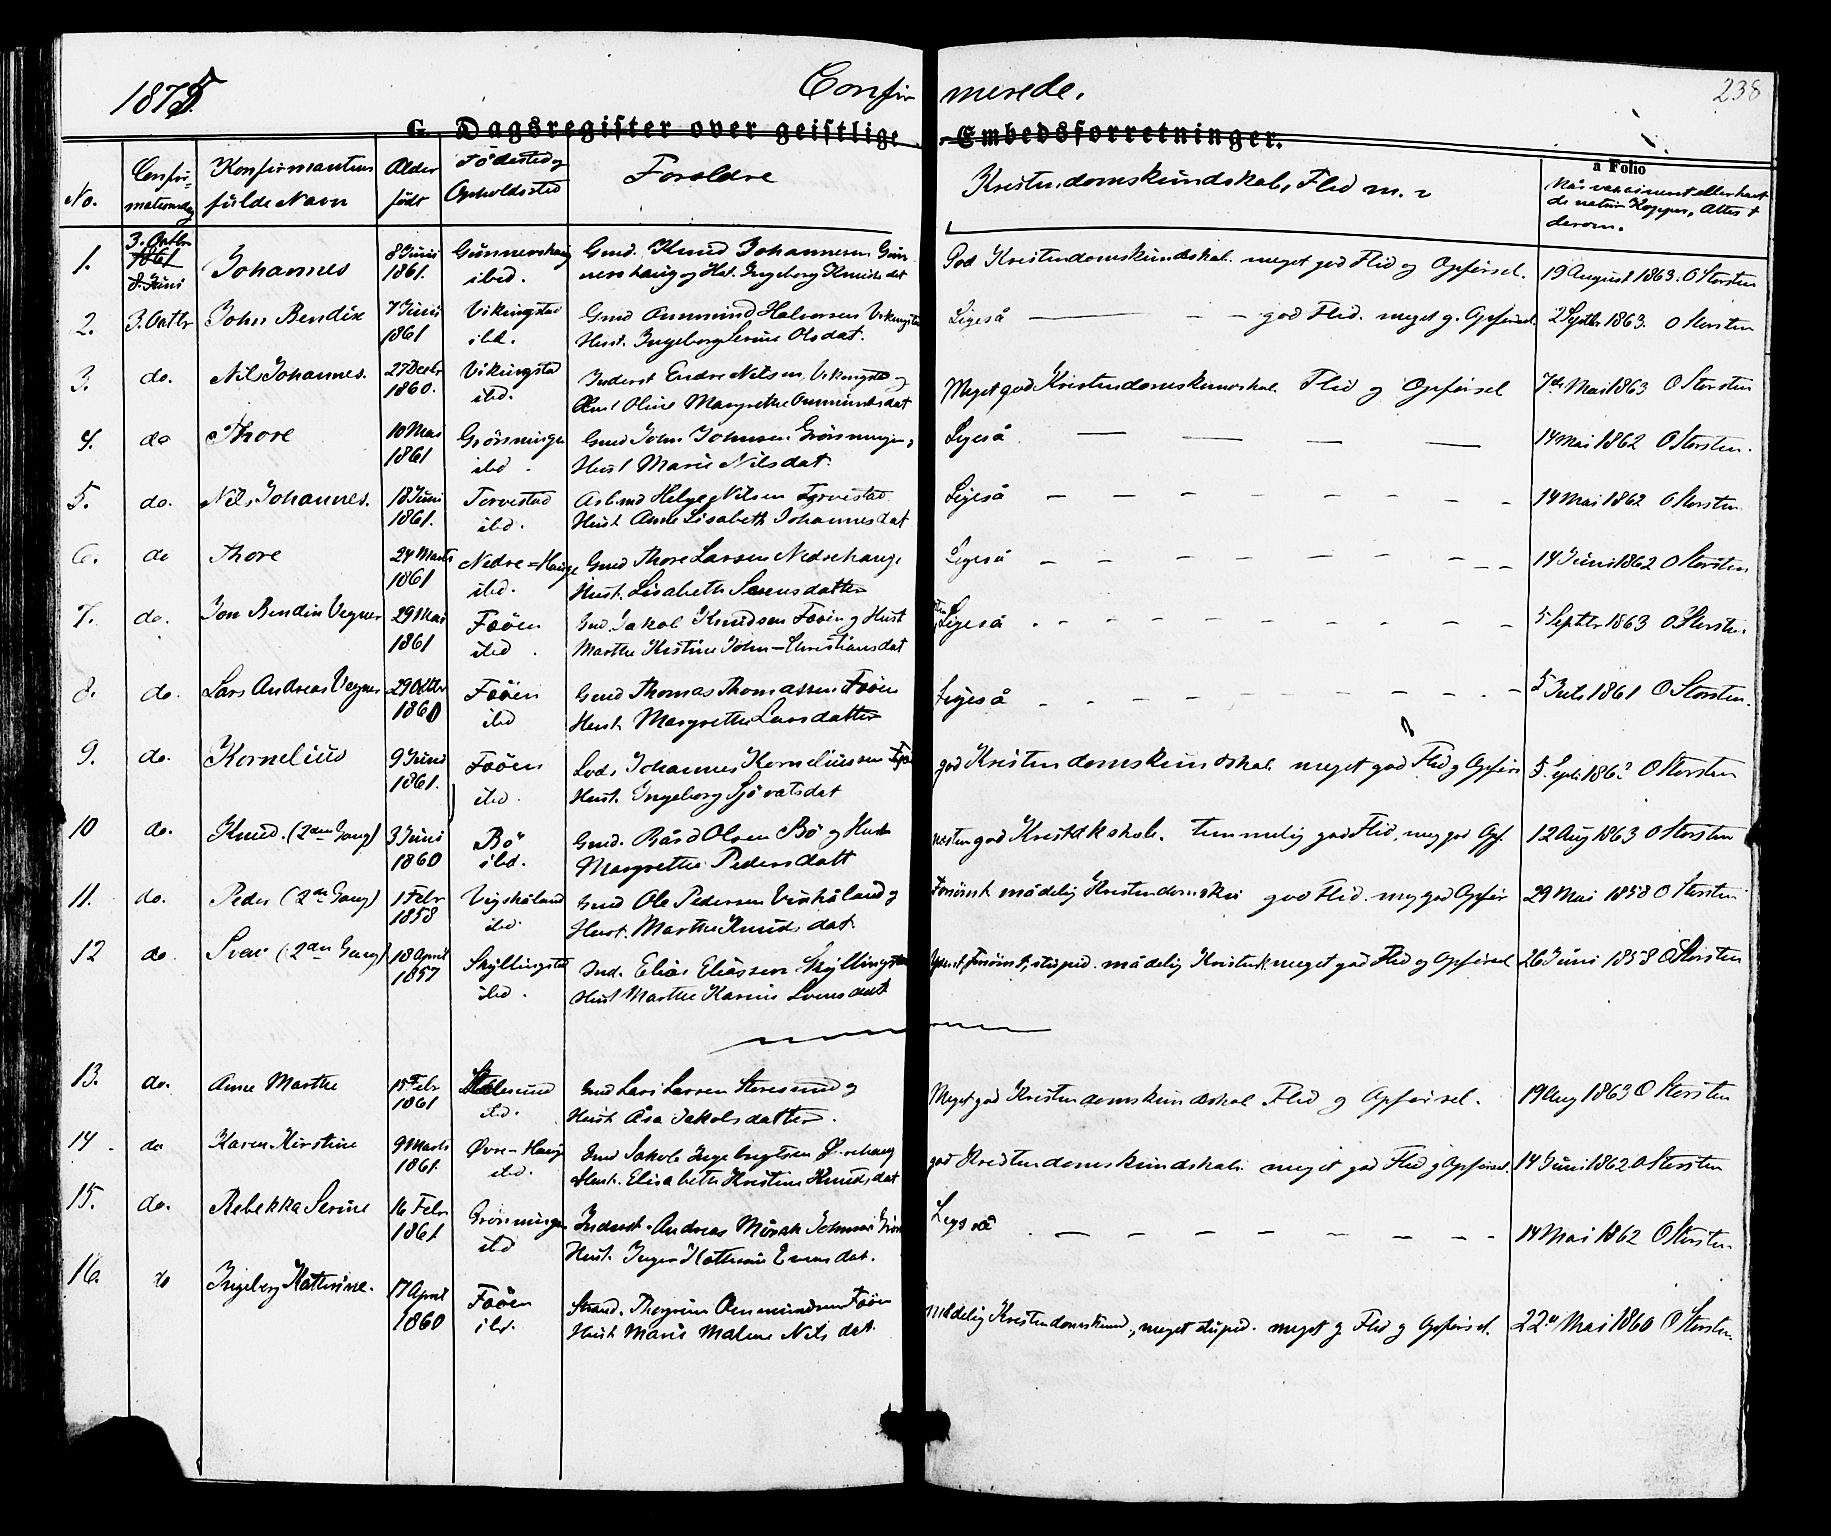 1875
Confirmerede.
238
G. Dagsregister over geistlige Embedsforretninger.
a Folio
No.
Confirmationsdag
Konfirmantens fulde Navn
Alder født
Fødested og Opholdssted
Forældre
Kristendomskundskab, Flid m. v
Når vaccineret eller havt de naturl. Kopper, Attest derom.
1. 3. Octbr 1861 8. Juni Johannes 8 Juni 1861. Gunnershaug ibid. Gmd. Knud Johannesen Gunnershaug og Hst. Ingeborg Knuds dat God Kristendomskundskab. meget god Flid og Opførsel. 19 August 1863. O Storsten
2. 3. Octbr John Bendix 7 Juni 1861 Vikingstad ibd. Gmd Ommund Halvorsen Vikingstad Hust. Ingeborg Serine Olsdat. Ligeså — - - god Flid. meget g. Opførsel 2 Septbr 1863. O Storsten
3. do. Nils Johannes. 27 Decbr 1860. Vikingstad ibd. Inderst Endre Nilsen Vikingstad og Hust Oline Margrethe Ommundsdat Meget god Kristendomskundskab Flid og Opførsel 7de Mai 1863 O Storsten
4. do Thore 10 Mai 1861 Grønningen ibd. Gmd John Johnsen Grønningen, Hust Marie Nilsdat. Ligeså — — — — 14 Mai 1862 O Storsten.
5. do. Nils Johannes. 18 Juni 1861. Torvestad ibd. Arb.md Helge Nilsen Torvestad Hust. Anne Lisabeth Johannesdat Ligeså - - - - - - - - 14 Mai 1862 O Storsten.
6. do Thore 24 Marts 1861 Nedre=Hauge ibd. Gmd Thore Larsen Nedrehauge Hust. Lisabeth Sørensdatter Ligeså - - - - - - - - 14 Juni 1862 O Storsten
7. do. Jon Bendix Vegner 29 Mai 1861 Fæøen ibd. Gmd Jakob Knudsen Fæøen og Hust Marthe Kistine John-Christiansdat Ligeså - - - - - - - - 5 Septbr 1863 O Storsten.
8. do. Lars Andreas Vegner 29 Octbr 1860 Fæøen ibd Gmd Thomas Thomassen Fæøen Hust. Margrethe Larsdatter Ligeså - - - - - - - - 5 Juli 1861 O Storsten.
9. do. Kornelius 9 Juni 1861. Fæøen ibd. Lods Johannes Korneliussen Hust. Ingeborg Sjovatsdat god Kristendomskundskab meget god Flid og Opførs 5. Septb. 1863 O Storsten
10 do. Knud. (2den Gang) 3 Juni 1860 Bø ibd. Gmd. Bård Olsen Bø og Hust Margrethe Pedersdatt næsten god Kristdkskab. temmelig god Flid, meg god Opf. 12 Aug 1863 O Storsten
11. do. Peder (2den Gang) 1 Febr 1858 Vigshåland ibd. Gmd Ole Pedersen Vixhåland og Hust. Marthe Knuds dat. Forsømt mådelig Kristendomsku god Flid. meg god Opfør 29 Mai 1858 O Storsten
12 do. (2den Gang) 18 April 1857 Skyllingstad ibd. Ind. Elias Eliassen Skyllingstad Hust Marthe Karine Svensdat forsømt, stupid. mådelig Kristendk. meget god Flid og Opførsel 26 Juni 1858 O Storsten
13. do. Anne Marthe 15 Febr 1861 ibd. Gmd Lars Larsen Storesund og Hust Åsa Jakobsdatter. Meget god Kristendomskundskab Flid og Opførsel. 19 Aug 1863 O Storsten
14. do Karen Kirstine 9 Marts 1861. Øvre-Hauge ibd. Gmd Jakob Ingebrigtsen Ø.rehaug Hust. Elisabeth Kristine Knuds dat god Kristendomskundskab. meget god Flid og Opførsel. 14 Juni 1862 O Storsten
15. do. Rebekka Serine 16 Febr 1861 Grønningen ibd Inderst. Andreas Johnsen Hust. Inger Evensdat. Ligeså - - - - - - - - 14 Mai 1862 O Storsten
16. do Ingeborg Kathrine. 17 April 1860 Fæøen ibd. Strand. Ommundsen Fæøen Hust Marie Malene Nils dat. Mådelig Kristendomskund., meget stupid. meget g Flid og Opførsel. 22de Mai 1860 O Storsten.